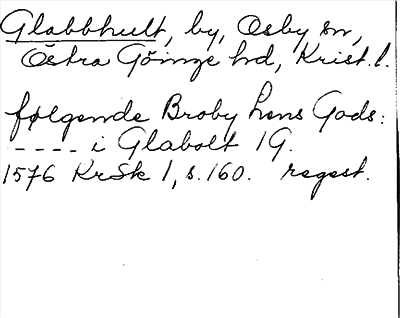 Glabbhult, by, Osby sn,
Östra Göinge hd, Krist. l.
følgende Broby Lens Gods:
---- i Glabolt 1G.
1576 KrSk 1, s. 160. regest.